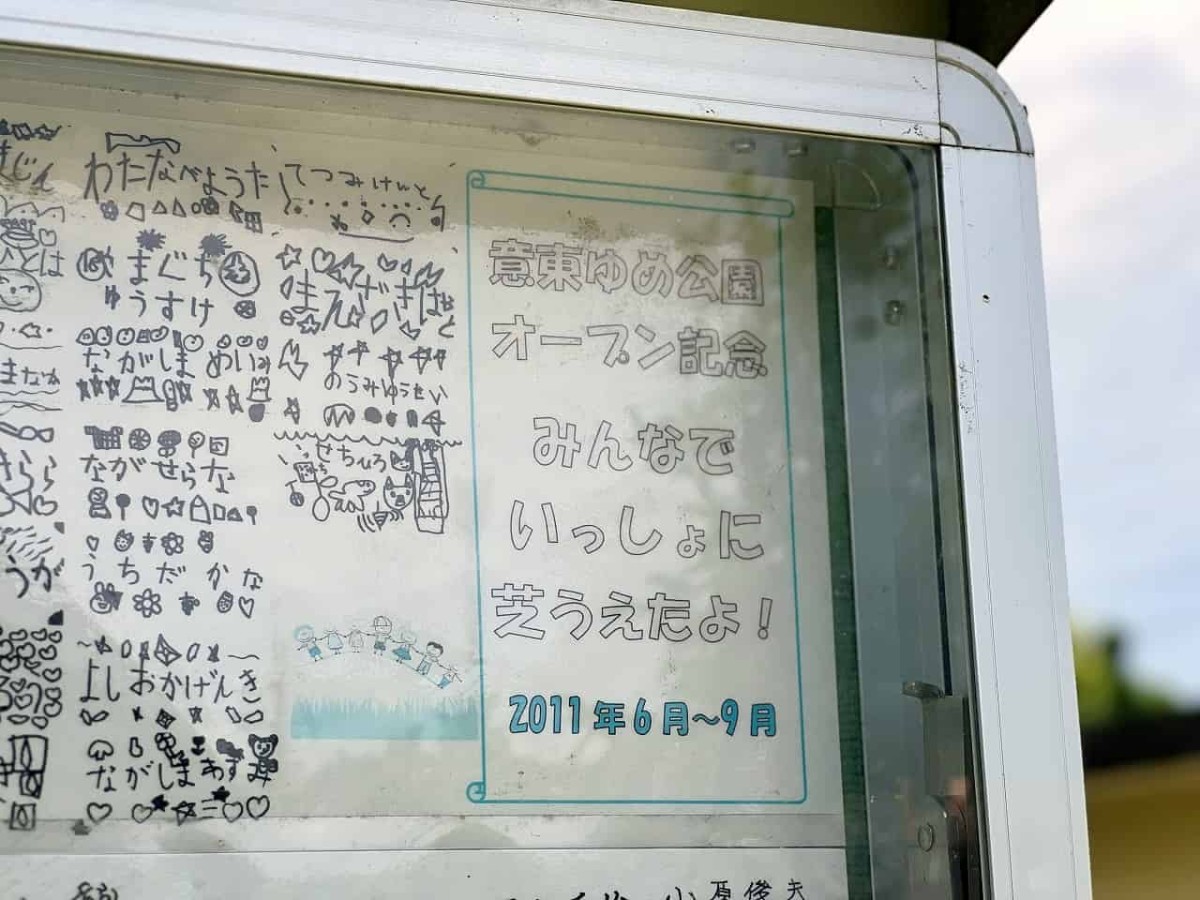 意東ゆめ公園
オープン記念
みんなで
いっしょに
芝うえたよ！
2011年6月～9月
てつみけんと
まえざきはやと
のうみゆうせい
わたなべようた
やまぐち
ゆうすけ
ながしまめいみ
ながせらな
うちだかな
よしおかげんき
ながしまあずみ
小原俊夫